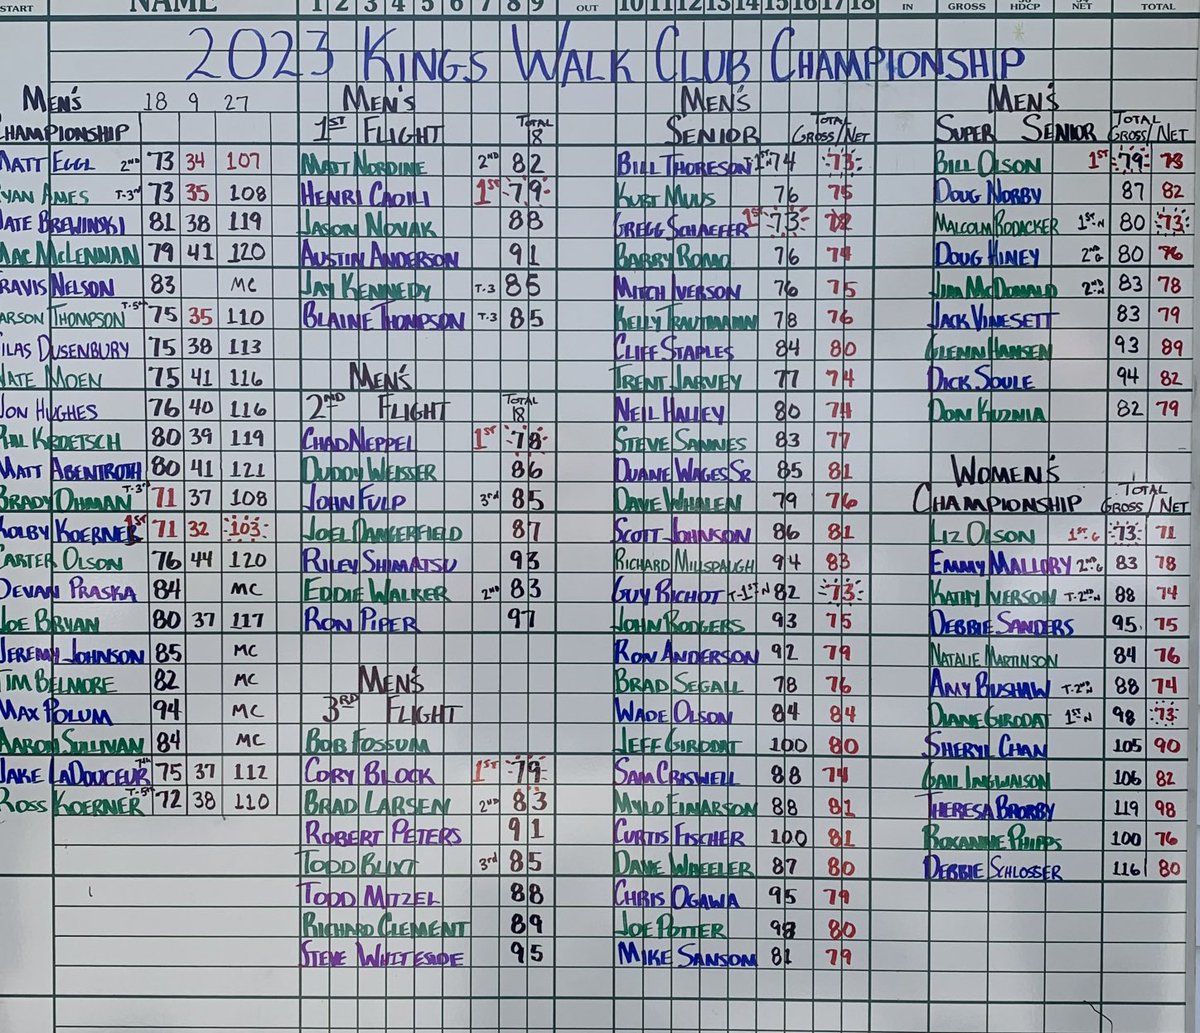 START NAME 1 2 3 4 5 6 7 8 9 OUT 10 11 12 13 14 15 16 17 18 IN GROSS HDCP NET TOTAL
2023 KINGS WALK CLUB CHAMPIONSHIP
MEN'S 18 9 27
CHAMPIONSHIP
MATT EGGL 2ND 73 34 107
YAN AMES T-3RD 73 35 108
NATE BREWINSKI 81 38 119
MAC MCLENNAN 79 41 120
RAVIS NELSON 83 MC
ARSON THOMPSON T-5TH 75 35 110
ILAS DUSENBURY 75 38 113
NATE MOEN 75 41 116
JON HUGHES 76 40 116
KROETSCH 80 39 119
MATT ABENTROTH 80 41 121
BRADY OHMAN T-3RD 71 37 108
KOLBY KOERNER 1ST 71 32 103
CARTER OLSON 76 44 120
DEVAN PRASKA 84 MC
JOE BRYAN 80 37 117
JEREMY JOHNSON 85 MC
TIM BELMORE 82 MC
MAX POLUM 94 MC
AARON SULLIVAN 84 MC
JAKE LADOUCEUR 7TH 75 37 112
ROSS KOERNER T-5TH 72 38 110
MEN'S
1ST FLIGHT TOTAL 18
MATT NORDINE 2ND 82
HENRI CADILI 1ST 79
JASON NOVAK 88
AUSTIN ANDERSON 91
JAY KENNEDY T-3 85
BLAINE THOMPSON T-3 85
MEN'S
2ND FLIGHT TOTAL 18
CHAD NEPPEL 1ST 78
DUDDY WEISSER 86
JOHN FULP 3rd 85
JOEL DANGERFIELD 87
RILEY SHIMATSU 93
EDDIE WALKER 2ND 83
RON PIPER 97
MEN'S
3RD FLIGHT
BOB FOSSUM
CORY BLOCK 1ST 79
BRAD LARSEN 2ND 83
ROBERT PETERS 91
TODD BLIXT 3rd 85
TODD MITZEL 88
RICHARD CLEMENT 89
STEVE WHITESIDE 95
MEN'S
SENIOR TOTAL GROSS/NET
BILL THORESON T-1ST N 74 73
KURT MUUS 76 75
GREGG SCHAEFER 1ST 73 72
BARRY ROMO 76 74
MITCH IVERSON 76 75
KELLY TRAUTMANN 78 76
CLIFF STAPLES 84 80
TRENT JARVEY 77 74
NEIL HALLEY 80 74
STEVE SANNES 83 77
DUANE WAGES SR 85 81
DAVE WHALEN 79 76
SCOTT JOHNSON 86 81
RICHARD MILLSPAUGH 94 83
GUY RICHOT T-1ST N 82 73
JOHN RODGERS 93 75
RON ANDERSON 92 79
BRAD SEGALL 78 76
WADE OLSON 84 84
JEFF GIRODAT 100 80
SAM CRISWELL 88 74
MYLO EINARSON 88 81
CURTIS FISCHER 100 81
DAVE WHEELER 87 80
CHRIS OGAWA 95 79
JOE POTTER 98 80
MIKE SANSON 81 79
MEN'S
SUPER SENIOR TOTAL GROSS/NET
BILL OLSON 1ST 79 73
DOUG NORBY 87 82
MALCOLM RODACKER 1ST N 80 73
DOUG HINEY 2ND G 80 76
JIM MCDONALD 2ND N 83 78
JACK VINESETT 83 79
GLENN HANSEN 93 89
DICK SOULE 94 82
DON KUZNIA 82 79
WOMEN'S
CHAMPIONSHIP TOTAL GROSS/NET
LIZ OLSON 1ST G 73 71
EMMY MALLORY 2ND G 83 78
KATHY IVERSON T-2ND N 88 74
DEBBIE SANDERS 95 75
NATALIE MARTINSON 84 76
AMY BUSHAW T-2ND N 88 74
DIANE GIRODAT 1ST N 98 73
SHERYL CHAN 105 90
GAIL INGWALSON 106 82
THERESA BRORBY 119 98
ROXANNE PHIPPS 100 76
DEBBIE SCHLOSSER 116 80